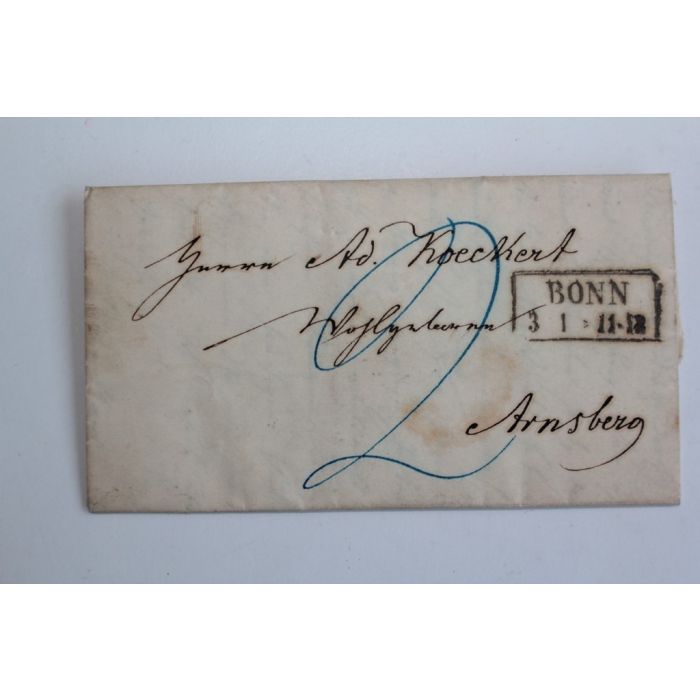 Herrn Ad. Koeckert
Wohlgeboren
Arnsberg
2
BONN
3 1 11-12